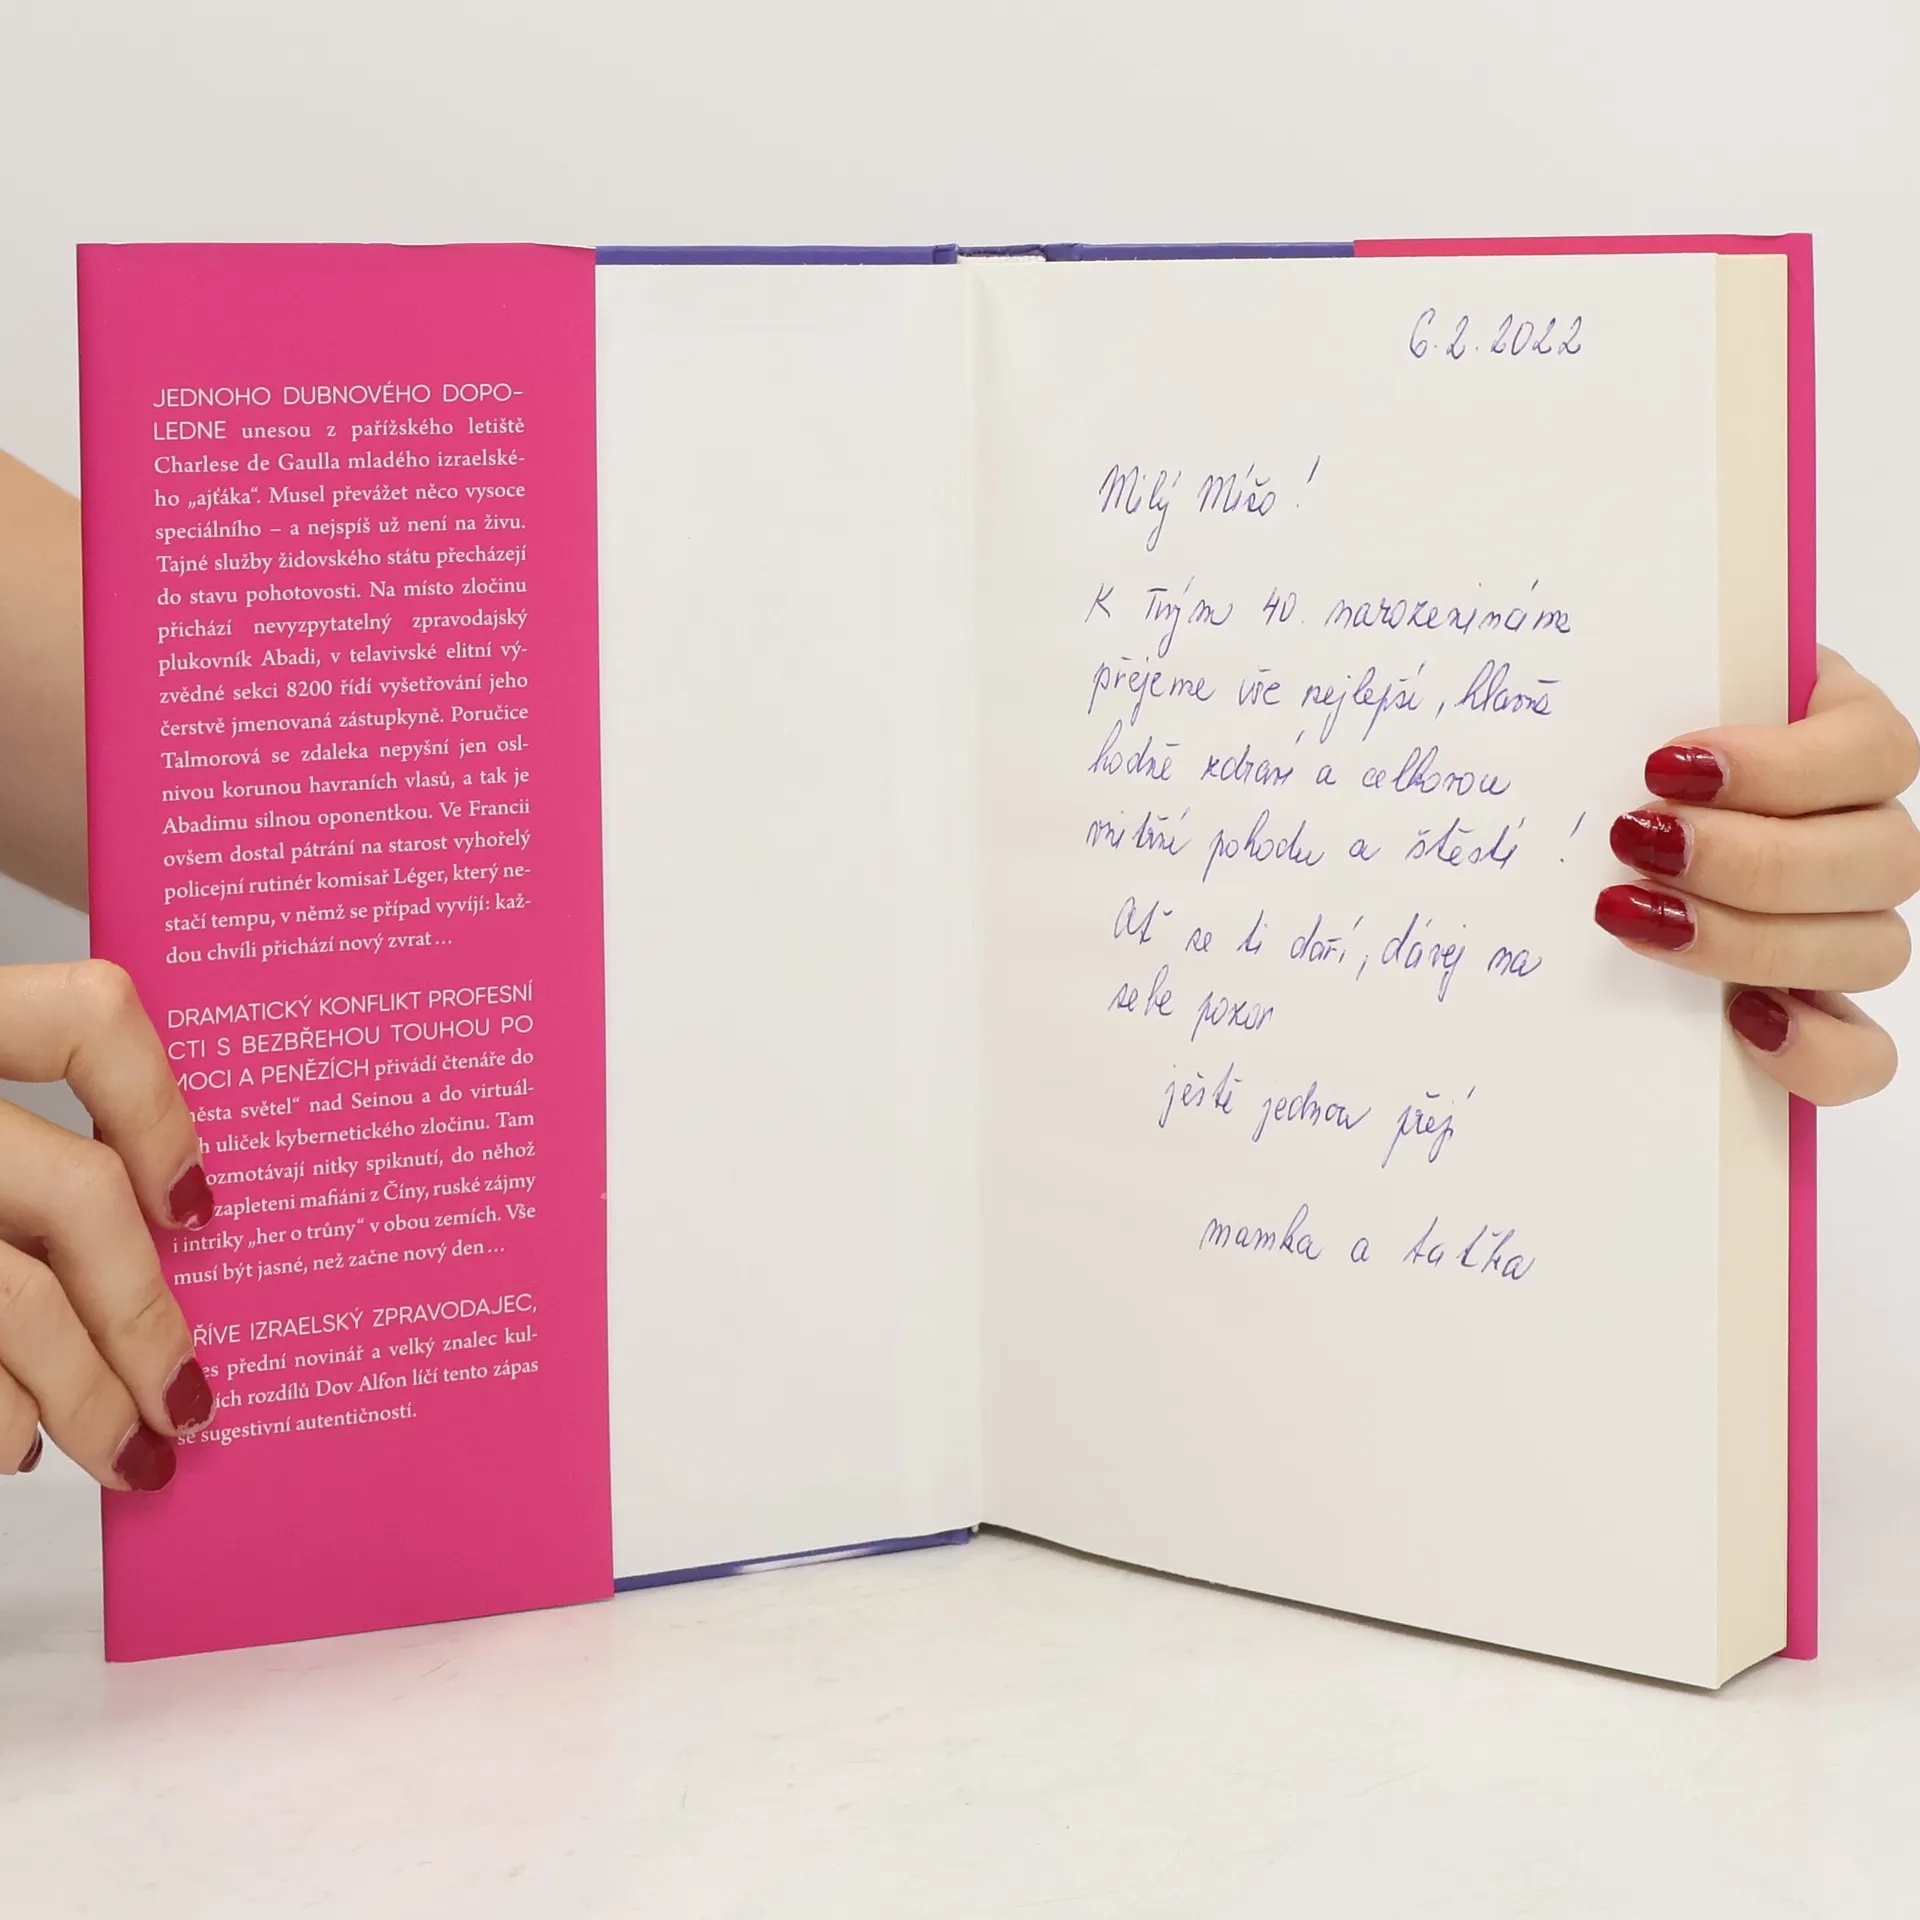 JEDNOHO DUBNOVÉHO DOPO-
LEDNE unesou z pařížského letiště
Charlese de Gaulla mladého izraelské-
ho „ajťáka“. Musel převážet něco vysoce
speciálního – a nejspíš už není na živu.
Tajné služby židovského státu přecházejí
do stavu pohotovosti. Na místo zločinu
přichází nevyzpytatelný zpravodajský
plukovník Abadi, v telavivské elitní vý-
zvědné sekci 8200 řídí vyšetřování jeho
čerstvě jmenovaná zástupkyně. Poručice
Talmorová se zdaleka nepyšní jen osl-
nivou korunou havraních vlasů, a tak je
Abadimu silnou oponentkou. Ve Francii
ovšem dostal pátrání na starost vyhořelý
policejní rutinér komisař Léger, který ne-
stačí tempu, v němž se případ vyvíjí: kaž-
dou chvíli přichází nový zvrat…
DRAMATICKÝ KONFLIKT PROFESNÍ
CTI S BEZBŘEHOU TOUHOU PO
MOCI A PENĚZÍCH přivádí čtenáře do
ěsta světel“ nad Seinou a do virtuál-
h uliček kybernetického zločinu. Tam
ozmotávají nitky spiknutí, do něhož
zapleteni mafiáni z Číny, ruské zájmy
i intriky „her o trůny“ v obou zemích. Vše
musí být jasné, než začne nový den…
ŘÍVE IZRAELSKÝ ZPRAVODAJEC,
es přední novinář a velký znalec kul-
ích rozdílů Dov Alfon líčí tento zápas
se sugestivní autentičností.
6.2.2022
Milý Míšo!
K Tvým 40. narozeninám
přejeme vše nejlepší, hlavně
hodně zdraví a celkovou
vnitřní pohodu a štěstí!
Ať se ti daří, dávej na
sebe pozor
ještě jednou přejí
mamka a taťka